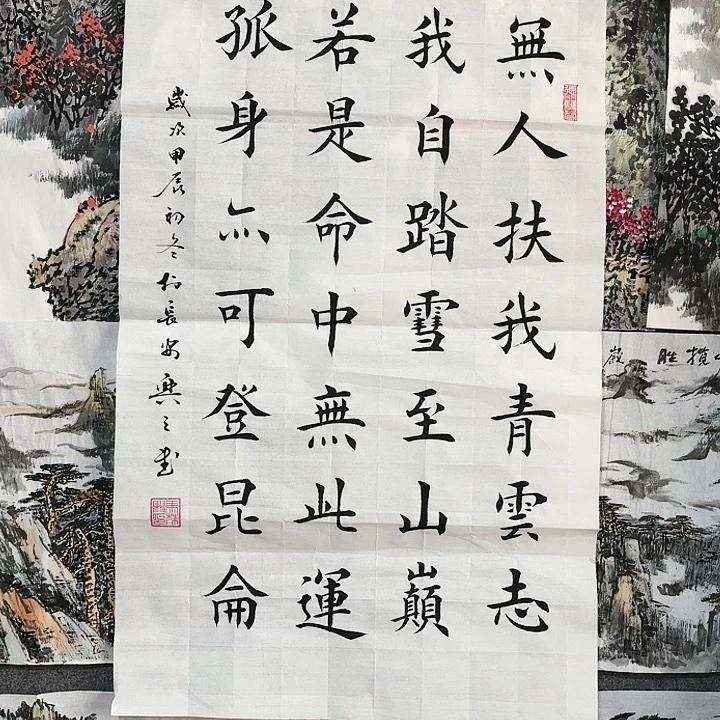 無人扶我青雲志
我自踏雪至山巔
若是命中無此運
孤身亦可登昆侖
歲次甲辰初冬於長安興之書
攬勝